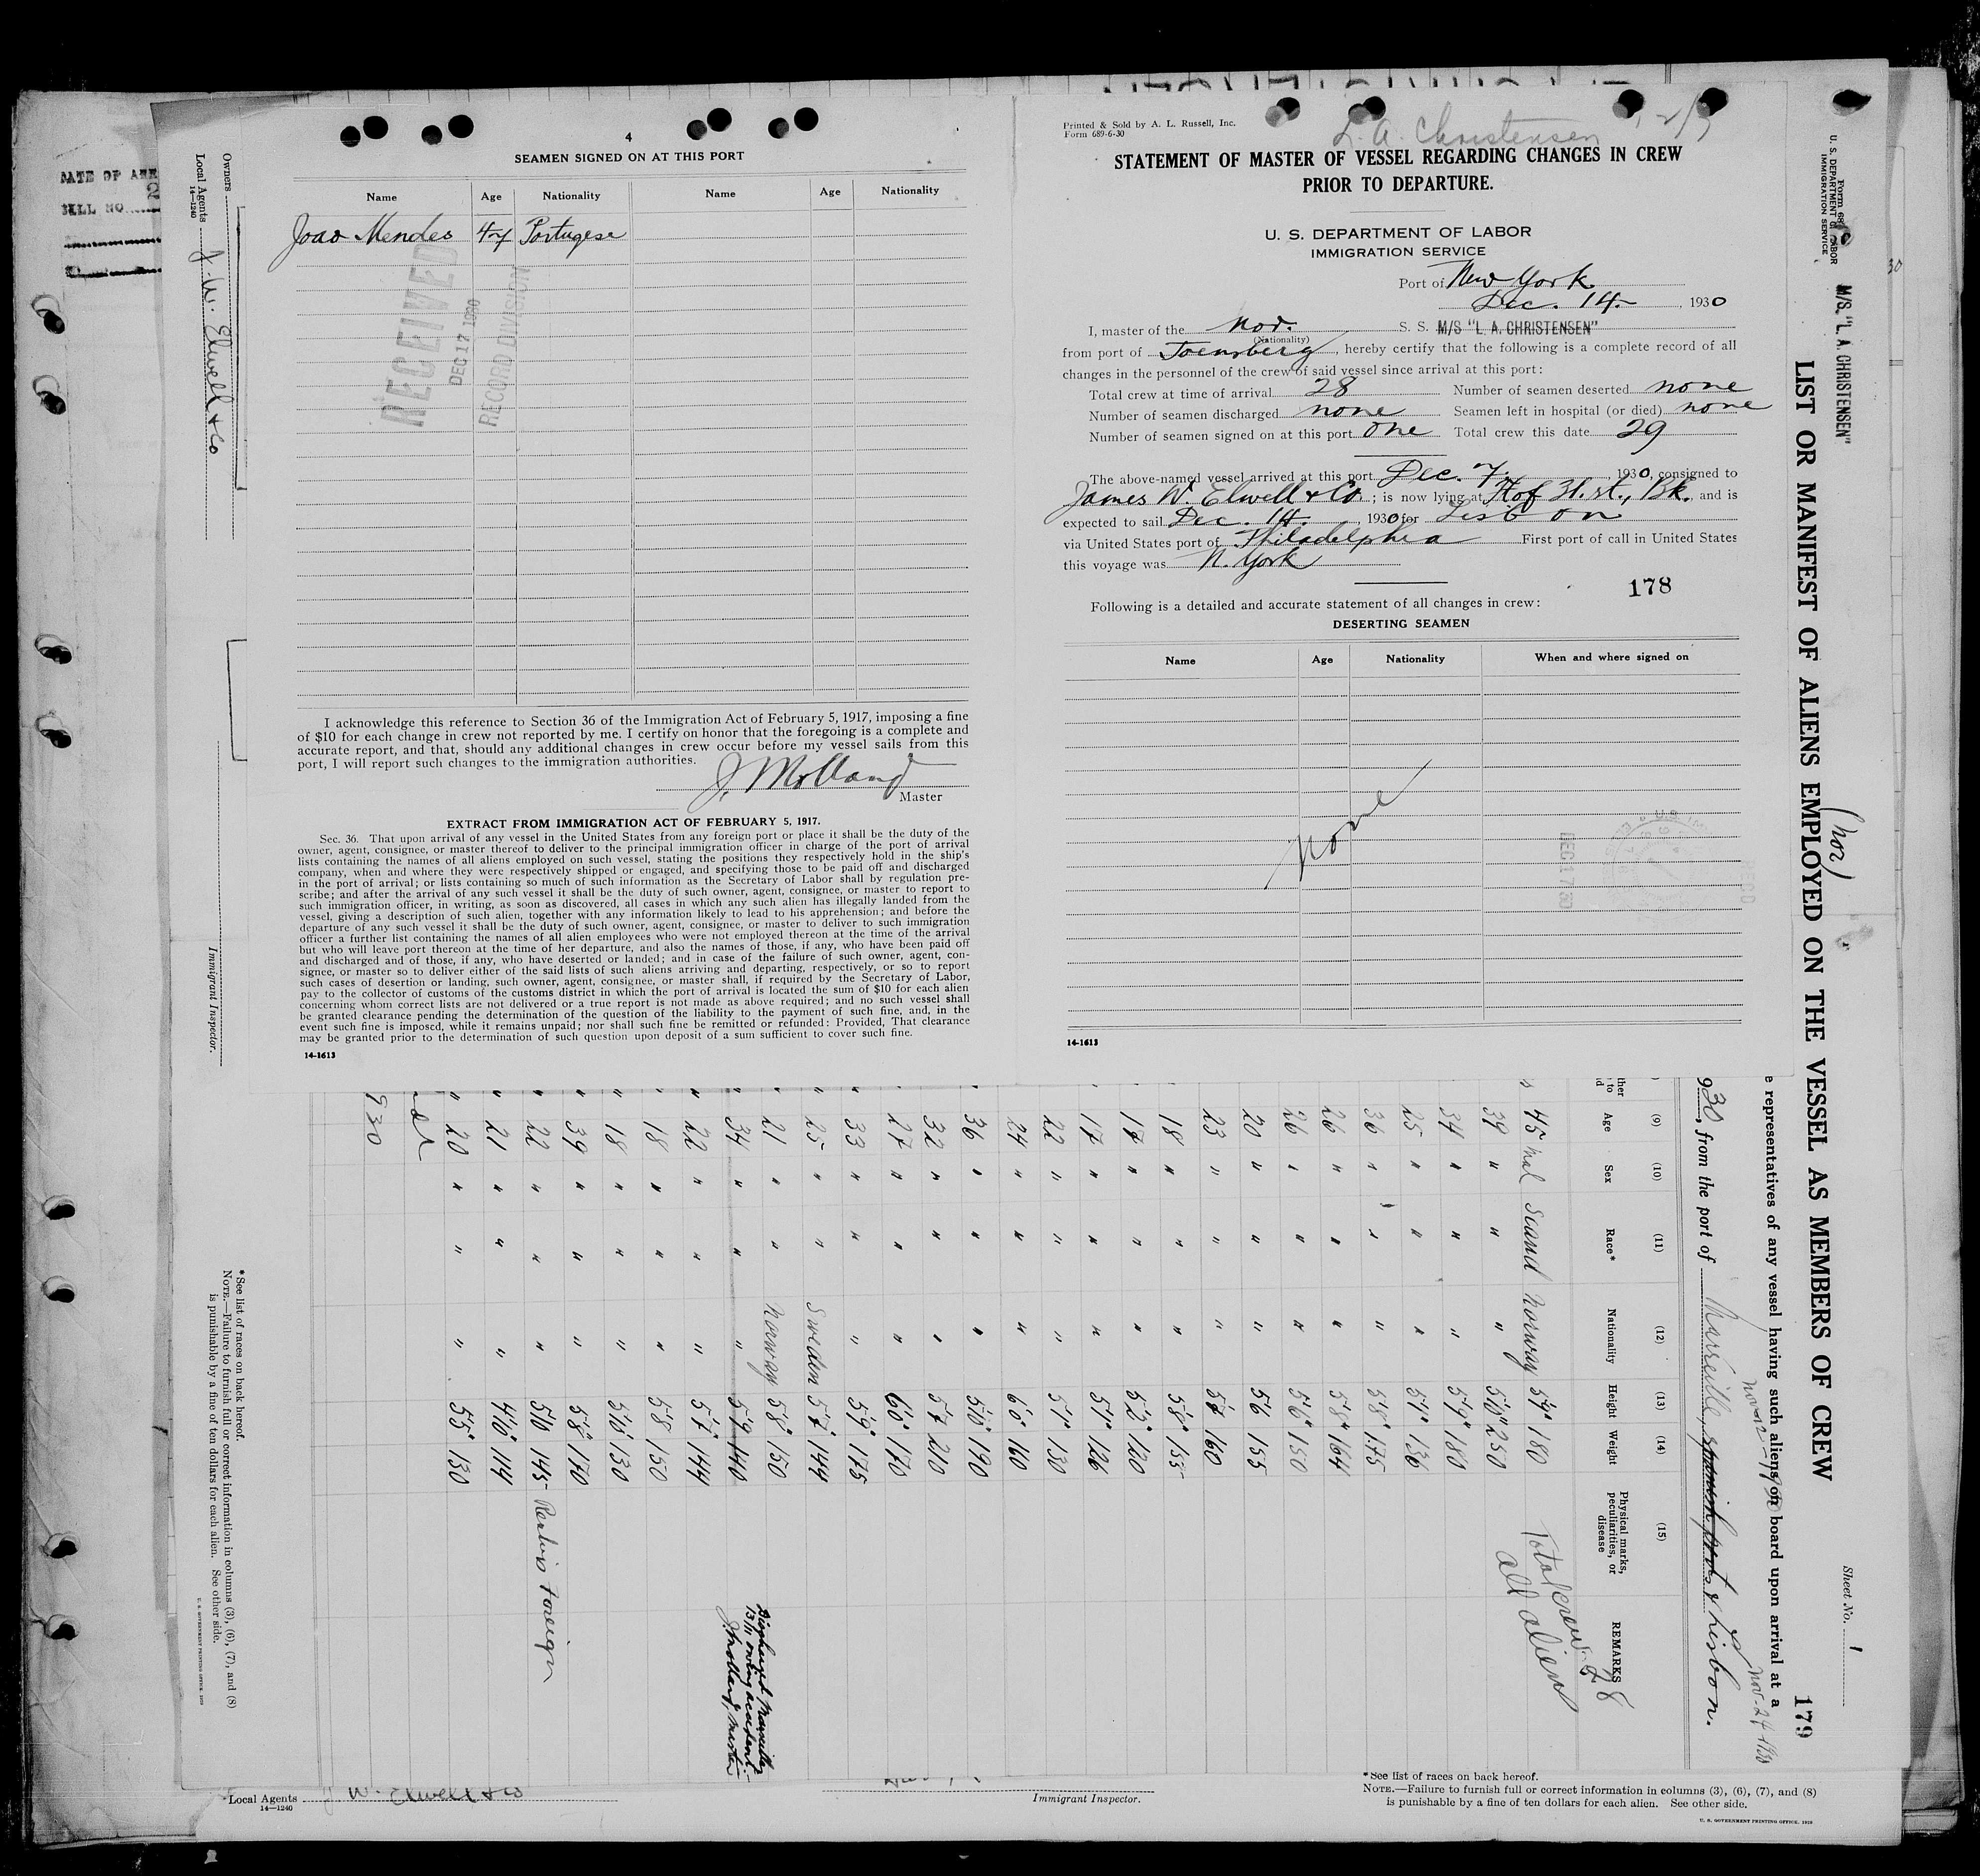 DATE OF ARR
BILL NO. 2
Owners
Local Agents J. W. Elwell & Co
14-1240
Immigrant Inspector.
4
SEAMEN SIGNED ON AT THIS PORT
Name Age Nationality Name Age Nationality
Joao Mendes 47 Portugese
RECEIVED
DEC 17 1930
RECORD DIVISION
I acknowledge this reference to Section 36 of the Immigration Act of February 5, 1917, imposing a fine
of $10 for each change in crew not reported by me. I certify on honor that the foregoing is a complete and
accurate report, and that, should any additional changes in crew occur before my vessel sails from this
port, I will report such changes to the immigration authorities.
J. Molland
Master
EXTRACT FROM IMMIGRATION ACT OF FEBRUARY 5, 1917.
Sec. 36. That upon arrival of any vessel in the United States from any foreign port or place it shall be the duty of the
owner, agent, consignee, or master thereof to deliver to the principal immigration officer in charge of the port of arrival
lists containing the names of all aliens employed on such vessel, stating the positions they respectively hold in the ship's
company, when and where they were respectively shipped or engaged, and specifying those to be paid off and discharged
in the port of arrival; or lists containing so much of such information as the Secretary of Labor shall by regulation pre-
scribe; and after the arrival of any such vessel it shall be the duty of such owner, agent, consignee, or master to report to
such immigration officer, in writing, as soon as discovered, all cases in which any such alien has illegally landed from the
vessel, giving a description of such alien, together with any information likely to lead to his apprehension; and before the
departure of any such vessel it shall be the duty of such owner, agent, consignee, or master to deliver to such immigration
officer a further list containing the names of all alien employees who were not employed thereon at the time of the arrival
but who will leave port thereon at the time of her departure, and also the names of those, if any, who have been paid off
and discharged and of those, if any, who have deserted or landed; and in case of the failure of such owner, agent, con-
signee, or master so to deliver either of the said lists of such aliens arriving and departing, respectively, or so to report
such cases of desertion or landing, such owner, agent, consignee, or master shall, if required by the Secretary of Labor,
pay to the collector of customs of the customs district in which the port of arrival is located the sum of $10 for each alien
concerning whom correct lists are not delivered or a true report is not made as above required; and no such vessel shall
be granted clearance pending the determination of the question of the liability to the payment of such fine, and, in the
event such fine is imposed, while it remains unpaid; nor shall such fine be remitted or refunded: Provided, That clearance
may be granted prior to the determination of such question upon deposit of a sum sufficient to cover such fine.
14-1613
Printed & Sold by A. L. Russell, Inc.
Form 689-6-30
L. A. Christensen
STATEMENT OF MASTER OF VESSEL REGARDING CHANGES IN CREW
PRIOR TO DEPARTURE.
U. S. DEPARTMENT OF LABOR
IMMIGRATION SERVICE
Port of New York
Dec. 14. , 1930
I, master of the Nor. S. S. M/S "L. A. CHRISTENSEN"
(Nationality)
from port of Toensberg, hereby certify that the following is a complete record of all
changes in the personnel of the crew of said vessel since arrival at this port:
Total crew at time of arrival 28 Number of seamen deserted none
Number of seamen discharged none Seamen left in hospital (or died) none
Number of seamen signed on at this port one Total crew this date 29
The above-named vessel arrived at this port Dec. 7. , 1930, consigned to
James W. Elwell & Co. ; is now lying at Ft of 31. st., Bk. and is
expected to sail Dec. 14. , 1930 for Lisbon
via United States port of Philadelphia First port of call in United States
this voyage was N. York
178
Following is a detailed and accurate statement of all changes in crew:
DESERTING SEAMEN
Name Age Nationality When and where signed on
None
DEC 17 1930
14-1613
U. S. DEPARTMENT OF LABOR
IMMIGRATION SERVICE
M/S. "L. A. CHRISTENSEN"
(Nor)
LIST OR MANIFEST OF ALIENS EMPLOYED ON THE VESSEL AS MEMBERS OF CREW
Sheet No. 1
179
e representatives of any vessel having such aliens on board upon arrival at a
930, from the port of Marseille, spanish ports & Lisbon.
Nov-24-1930
(9) (10) (11) (12) (13) (14) (15)
Age Sex Race* Nationality Height Weight Physical marks, peculiarities, or disease REMARKS
Total crew 28
all aliens
45 Mal Scand Norway 5'7" 180
39 " " " 5'10" 250
34 " " " 5'9" 180
25 " " " 5'7" 136
36 " " " 5'8" 175
26 " " " 5'8" 164
26 " " " 5'6" 150
20 " " " 5'6 155
23 " " " 5'8 160
18 " " " 5'8" 155
17 " " " 5'2" 120
17 " " " 5'7" 126
22 " " " 5'7" 130
24 " " " 6'0" 160
36 " " " 5'10" 190
32 " " " 5'7 210
27 " " " 6'0" 170
33 " " " 5'9" 175
25 " " Sweden 5'7" 144
21 " " Norway 5'8" 150
34 " " " 5'9 140 Discharged Marseille 13/11 owing accident. J. Molland, Master
22 " " " 5'7" 144
18 " " " 5'8 150
18 " " " 5'10" 130
39 " " " 5'8" 170
22 " " " 5'10 145 Foreign
21 " " " 4'10" 114
20 " " " 5'5" 130
930
*See list of races on back hereof.
NOTE.—Failure to furnish full or correct information in columns (3), (6), (7), and (8)
is punishable by a fine of ten dollars for each alien. See other side.
U. S. GOVERNMENT PRINTING OFFICE. 1929
Local Agents J W. Elwell & Co
14-1240
Immigrant Inspector.
*See list of races on back hereof.
NOTE.—Failure to furnish full or correct information in columns (3), (6), (7), and (8)
is punishable by a fine of ten dollars for each alien. See other side.
U. S. GOVERNMENT PRINTING OFFICE. 1929